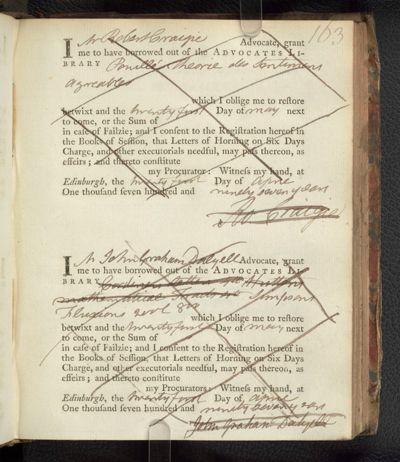 163
I Mr Robert Craigie Advocate, grant
me to have borrowed out of the ADVOCATES LI-
BRARY Pouilli Theorie des Sentimens
agreables
which I oblige me to restore
betwixt and the twenty first Day of may next
to come, or the Sum of
in case of Failzie; and I consent to the Registration hereof in
the Books of Session, that Letters of Horning on Six Days
Charge, and other executorials needful, may pass thereon, as
effeirs; and thereto constitute
my Procurator: Witness my hand, at
Edinburgh, the twenty first Day of Aprile
One thousand seven hundred and ninety seven years
Ro. Craigie
I Mr John Graham Dalyell Advocate, grant
me to have borrowed out of the ADVOCATES LI-
BRARY Huttons
mathematical Tracts Simpsons
Fluxions 2 vol 8vo
which I oblige me to restore
betwixt and the twenty first Day of may next
to come, or the Sum of
in case of Failzie; and I consent to the Registration hereof in
the Books of Session, that Letters of Horning on Six Days
Charge, and other executorials needful, may pass thereon, as
effeirs; and thereto constitute
my Procurator: Witness my hand, at
Edinburgh, the twenty first Day of, aprile
One thousand seven hundred and ninety seven years
John Graham Dalyell